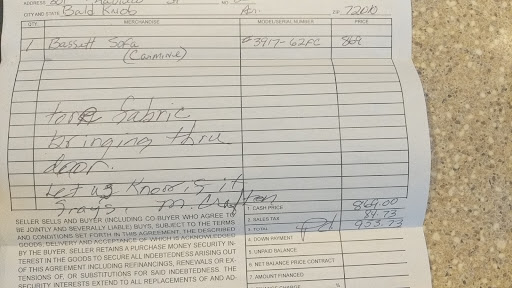 ADDRESS
CITY AND STATE Bald Knob Ar. ZIP 72010
QTY. MERCHANDISE MODEL/SERIAL NUMBER PRICE
1 Bassett Sofa #3917-62FC 869
(Carmine)
tore fabric
bringing thru
door.
Let us Know is it
Frays. M.
SELLER SELLS AND BUYER (INCLUDING CO-BUYER WHO AGREE TO
BE JOINTLY AND SEVERALLY LIABLE) BUYS, SUBJECT TO THE TERMS
AND CONDITIONS SET FORTH IN THIS AGREEMENT, THE DESCRIBED
GOODS, DELIVERY AND ACCEPTANCE OF WHICH IS ACKNOWLEDGED
BY THE BUYER. SELLER RETAINS A PURCHASE MONEY SECURITY IN-
TEREST IN THE GOODS TO SECURE ALL INDEBTEDNESS ARISING OUT
OF THIS AGREEMENT INCLUDING REFINANCINGS, RENEWALS OR EX-
TENSIONS OF, OR SUBSTITUTIONS FOR SAID INDEBTEDNESS. THE
SECURITY INTERESTS EXTEND TO ALL REPLACEMENTS OF AND AD-
1 CASH PRICE 869.00
2. SALES TAX 84.73
3. TOTAL Pd 953.73
4. DOWN PAYMENT
5. UNPAID BALANCE
6. NET BALANCE PRICE CONTRACT
7. AMOUNT FINANCED